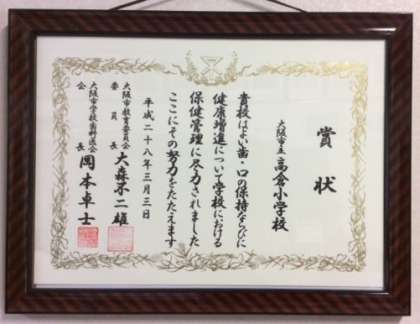 賞状
大阪市立 高倉小学校
貴校はよい歯・口の保持ならびに
健康増進について学校における
保健管理に尽力されました
ここにその努力をたたえます
平成二十八年三月三日
大阪市教育委員会
委員長 大森不二雄
大阪市学校歯科医会
会長 岡本卓士